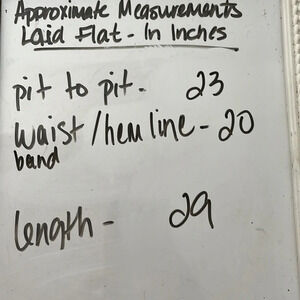 Approximate Measurements
Laid Flat - In Inches
pit to pit - 23
waist/hem line - 20
band
length - 29